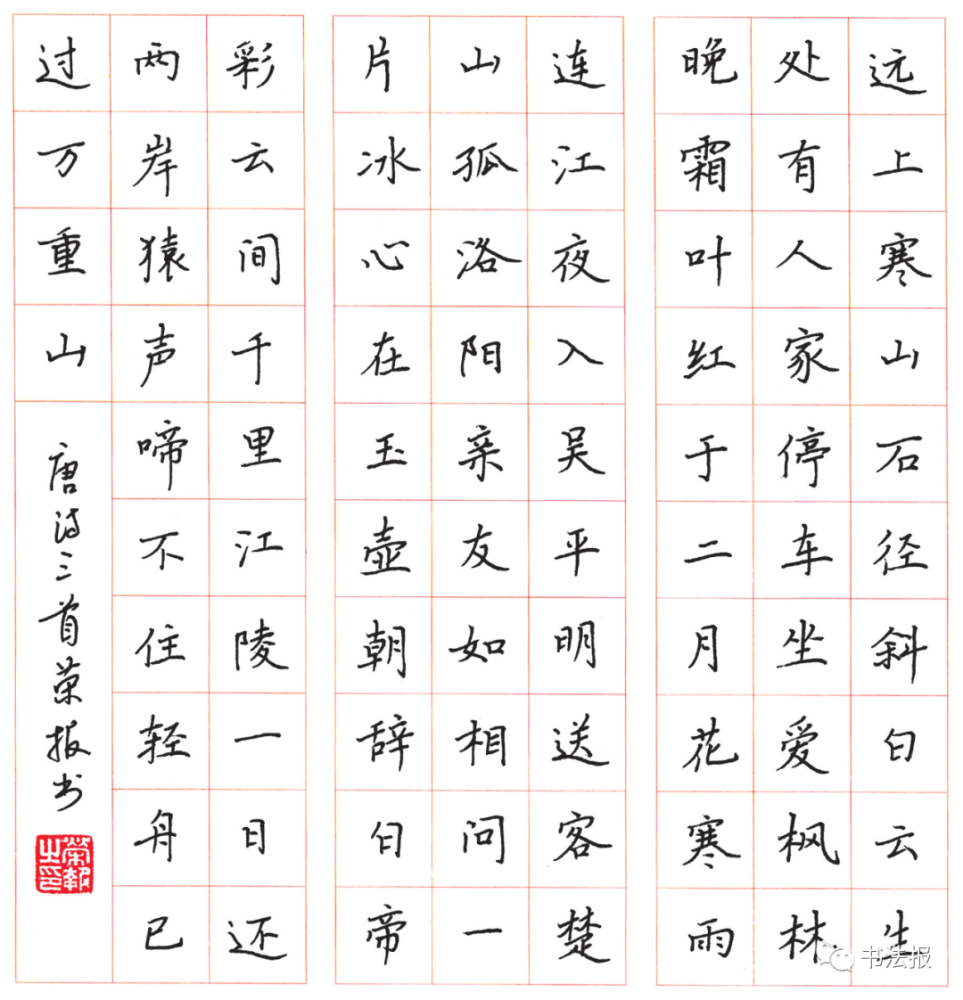 远上寒山石径斜白云生
处有人家停车坐爱枫林
晚霜叶红于二月花寒雨
连江夜入吴平明送客楚
山孤洛阳亲友如相问一
片冰心在玉壶朝辞白帝
彩云间千里江陵一日还
两岸猿声啼不住轻舟已
过万重山
唐诗三首荣报书
榮報之印
书法报